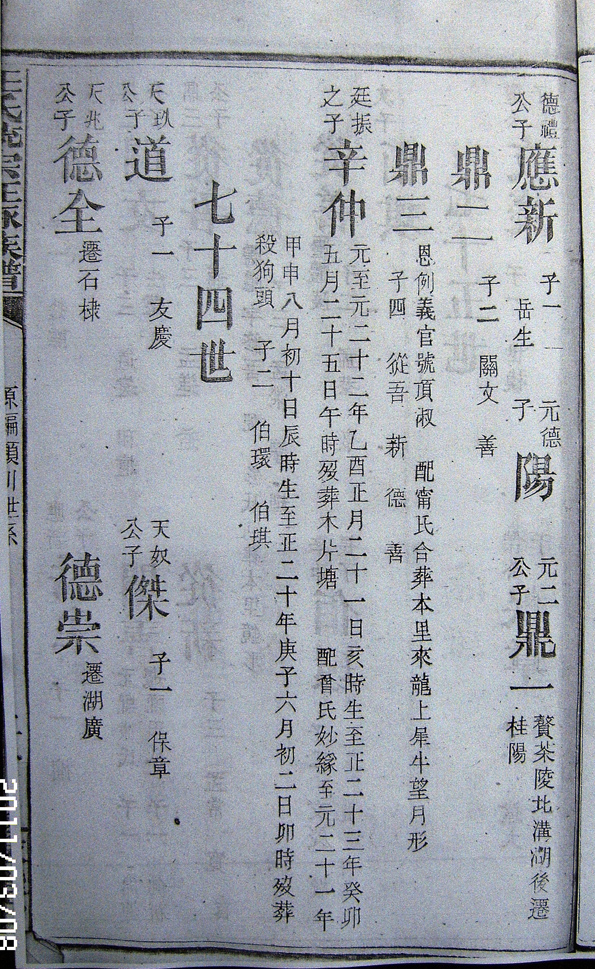 德禮公子 應新 子一 岳生 元德子 陽 元二公子 鼎一 贅茶陵北溝湖後遷桂陽
鼎二 子二 關文 善
鼎三 恩例義官號頂淑 配甯氏合葬本里來龍上犀牛望月形 子四 從吾 新 德 善
廷振之子 辛仲 元至元二十二年乙酉正月二十一日亥時生至正二十三年癸卯
五月二十五日午時歿葬木片塘 配曾氏妙緣至元二十一年
甲申八月初十日辰時生至正二十年庚子六月初二日卯時歿葬
殺狗頭 子二 伯環 伯琪
七十四世
天玖公子 道 子一 友慶 天奴公子 傑 子一 保章
天兆公子 德全 遷石棣 德崇 遷湖廣
王氏 宗 族譜 原編潁川世系
2011/03/08